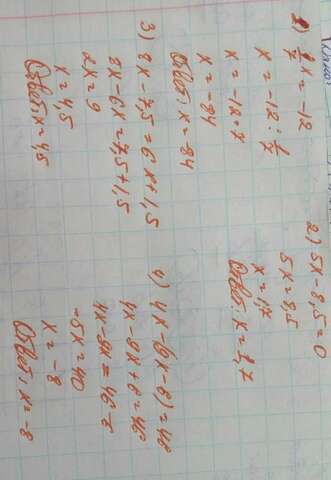 1) 1/7 x = -12
x = -12 : 1/7
x = -12 * 7
x = -84
Ответ: x = -84
2) 5x - 8,5 = 0
5x = 8,5
x = 1,7
Ответ: x = 1,7
3) 8x - 7,5 = 6x + 1,5
8x - 6x = 7,5 + 1,5
2x = 9
x = 4,5
Ответ: x = 4,5
4) 4x - (9x - 6) = 46
4x - 9x + 6 = 46
4x - 9x = 46 - 6
-5x = 40
x = -8
Ответ: x = -8